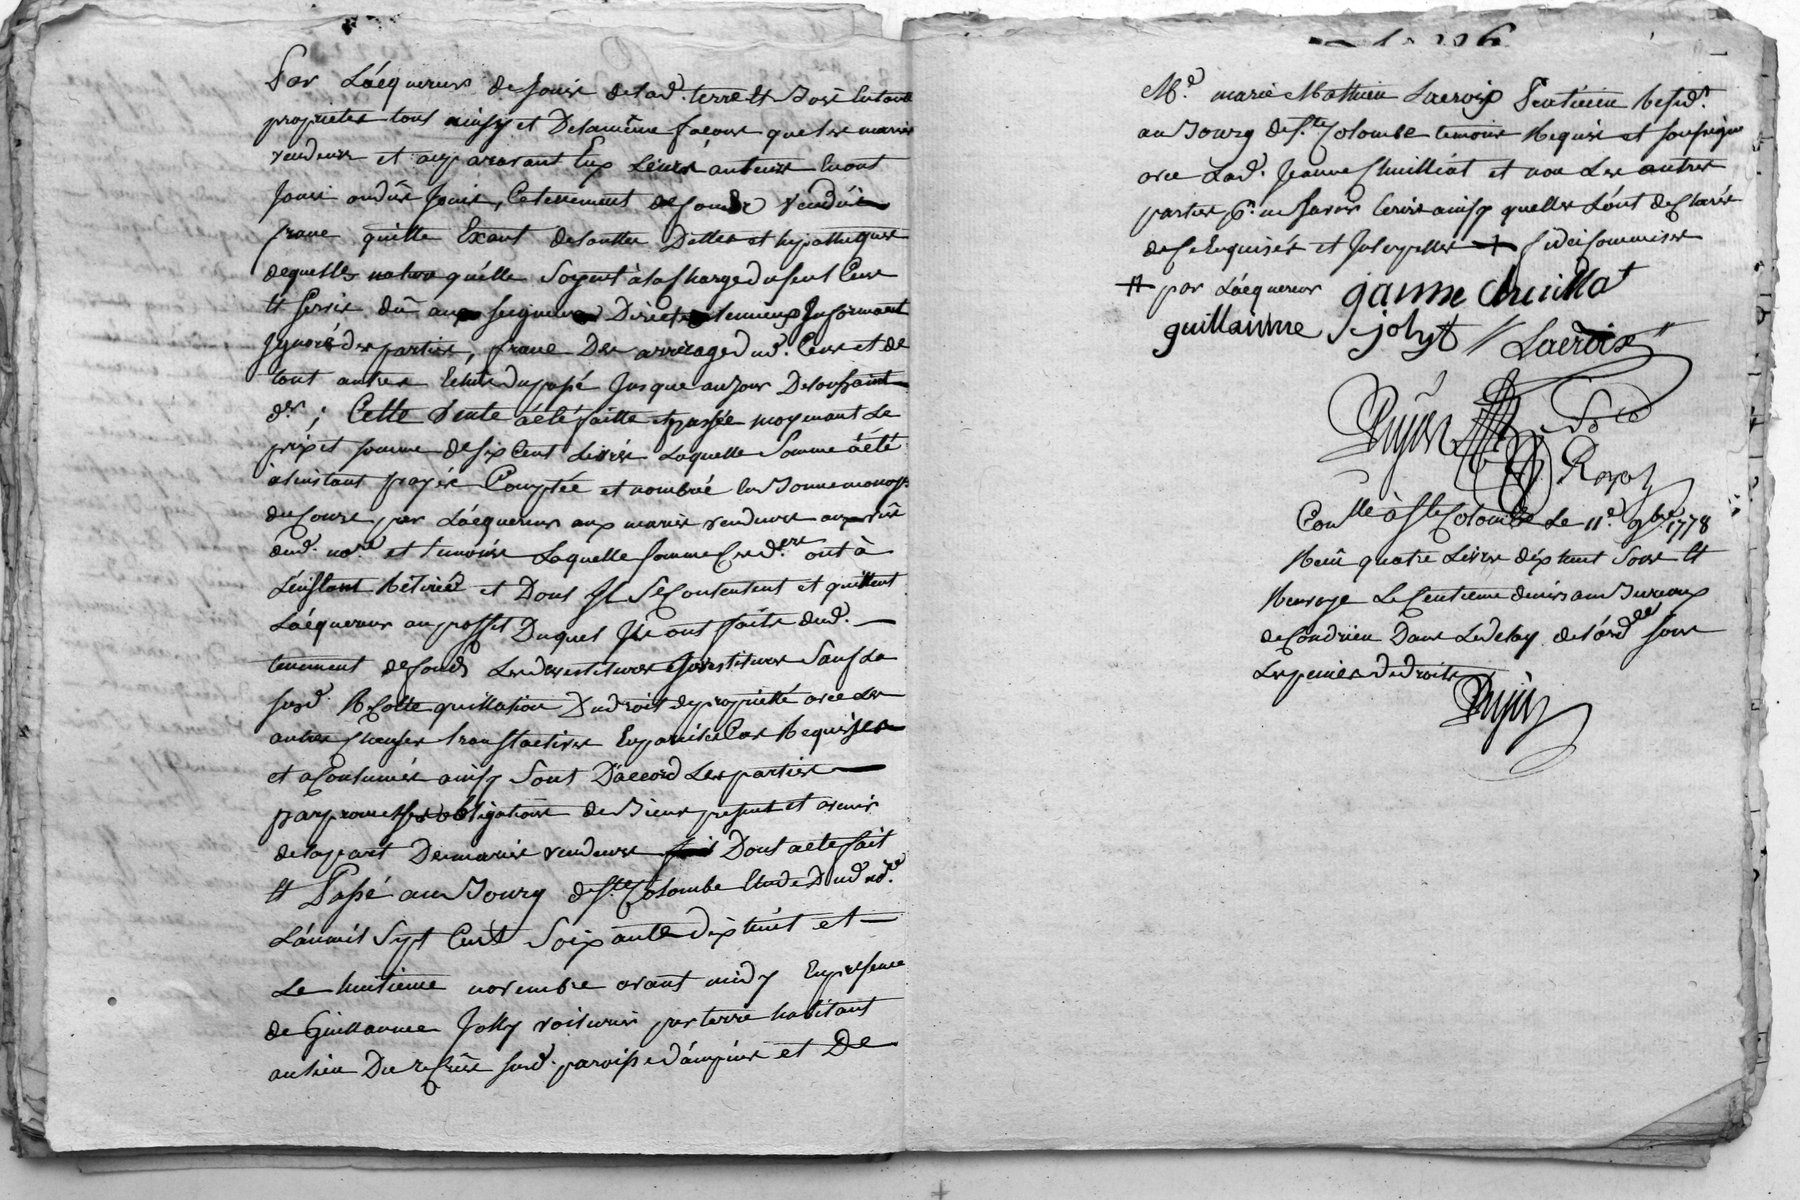 Par Lâcquereur de Jouir de lad. terre et Bois en toute
propriettes tout ainsy et De la même facons que les mariés
vendeurs et auparavant Eux Leurs auteurs en ont
Joui ou dû Jouir, Ce tenement de fonds Vendu
franc quitte Exant de touttes Dettes et hypotheques
de quelle nature qu'elle Soyent à la Charge du seul Cens
et Servis dû aux seigneurs Directs
Ignoré des parties, franc Des arrérages dud. Cens et de
tout autres du passé Jusque au Jour De toussaint
der, Cette Vente a été faitte et passée moyenant Le
prix et somme de six Cent Livres Laquelle Somme a été
à Linstant payée Comptée et nombrée en Bonne monoye
du Cours par Lâcquereur aux mariés vendeurs au vû
dud. nore et temoins Laquelle somme Ces d. ont à
Léinstant Retirée et Dont Jls Se Contentent et quittent
Lâcquereur au proffit Duquel Jls ont faits dud.
tenement de fonds Les devestitures Jnvestitures Sauf La
susd. Recolte Du droit de proprietté avec Les
autres Clauses translatives En pareils Cas Requises
et acoutumés ainsy Sont D'accord Les parties
par promesses obligations de Biens present et avenir
de la part Des mariés vendeurs Dont acte fait
et Passé au Bourg de Ste Colombe Etude Dud. nore
Lan mil Sept Cent Soixante dix huit et
Le huitieme novembre avant midy En presence
de Guillaume Jolly voiturier par terre habitant
au lieu Du susd. paroisse d'ampuis et De
Me. marie Mathieu Lacroix Praticien Resid.
au Bourg de Ste Colombe temoins Requis et soussignés
avec Lad. Jeanne Chuilliat et non Les autres
parties pr. ne savoir Ecrire ainsy quelles L'ont declarés
de Ce Enquises et Jnterpellés + fideicommises
# par Lâcquereur ganne chuillat
guillaime jolyt Lacroix
Pujin
Royal
Conlle à Ste Colombe Le 11e. 9bre 1778
Reçu quatre Livres dix huit Sous et
Renvoye Le Centieme deniers au Bureau
de Condrieu Dans Le delay de L'ordce sous
Les peines de droits
Pujin